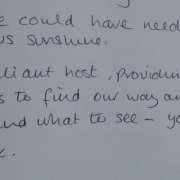 e could have need
us sunshine.
liant host, providin
s to find our way ar
and what to see – yo